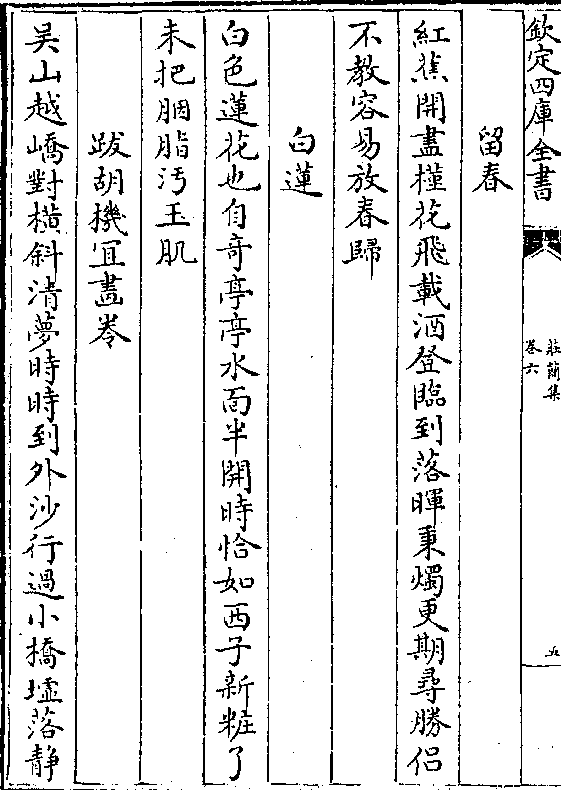 欽定四庫全書
莊簡集
卷六
五
留春
紅蕉開盡槿花飛載酒登臨到落暉秉燭更期尋勝侣
不教容易放春歸
白蓮
白色蓮花也自竒亭亭水面半開時恰如西子新粧了
未把胭脂汚玉肌
跋胡機宜畫卷
吴山越嶠對横斜清夢時時到外沙行過小橋墟落静